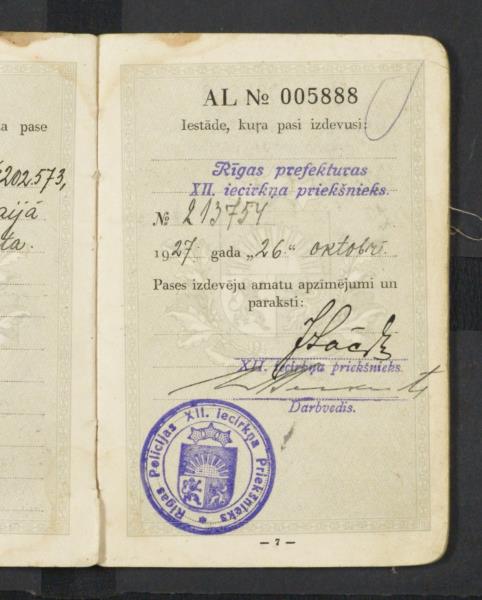 a pase
202.573,
aijā
ta.
AL № 005888
Iestāde, kuŗa pasi izdevusi:
Rīgas prefekturas
XII. iecirkņa priekšnieks.
№ 213754
1927 gada „26.“ oktobrī.
Pases izdevēju amatu apzīmējumi un
paraksti:
XII. iecirkņa priekšnieks.
Darbvedis.
Rīgas Policijas XII. iecirkņa Priekšnieks
— 7 —